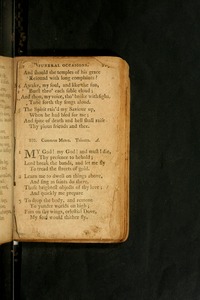 FUNERAL OCCASIONS.
And should the temples of his grace
Resound with long complaints?
Awake, my soul, and like the sun,
Burst thro' each sable cloud;
And thou, my voice, tho' broke with sighs,
Tune forth thy songs aloud.
The Spirit rais'd my Saviour up,
When he had bled for me;
And spite of death and hell shall raise
Thy pious friends and thee.
Common Metre.
MY God! my God! and must I die,
Thy presence to behold;
Lord break the bonds, and let me fly
To tread the streets of gold.
Learn me to dwell on things above,
And sing as saints do there,
Those brightest objects of thy love;
And quickly me prepare
To drop the body, and remove
To yonder worlds on high;
Fir'd on thy wings, celestial Dove,
My soul would thither fly.